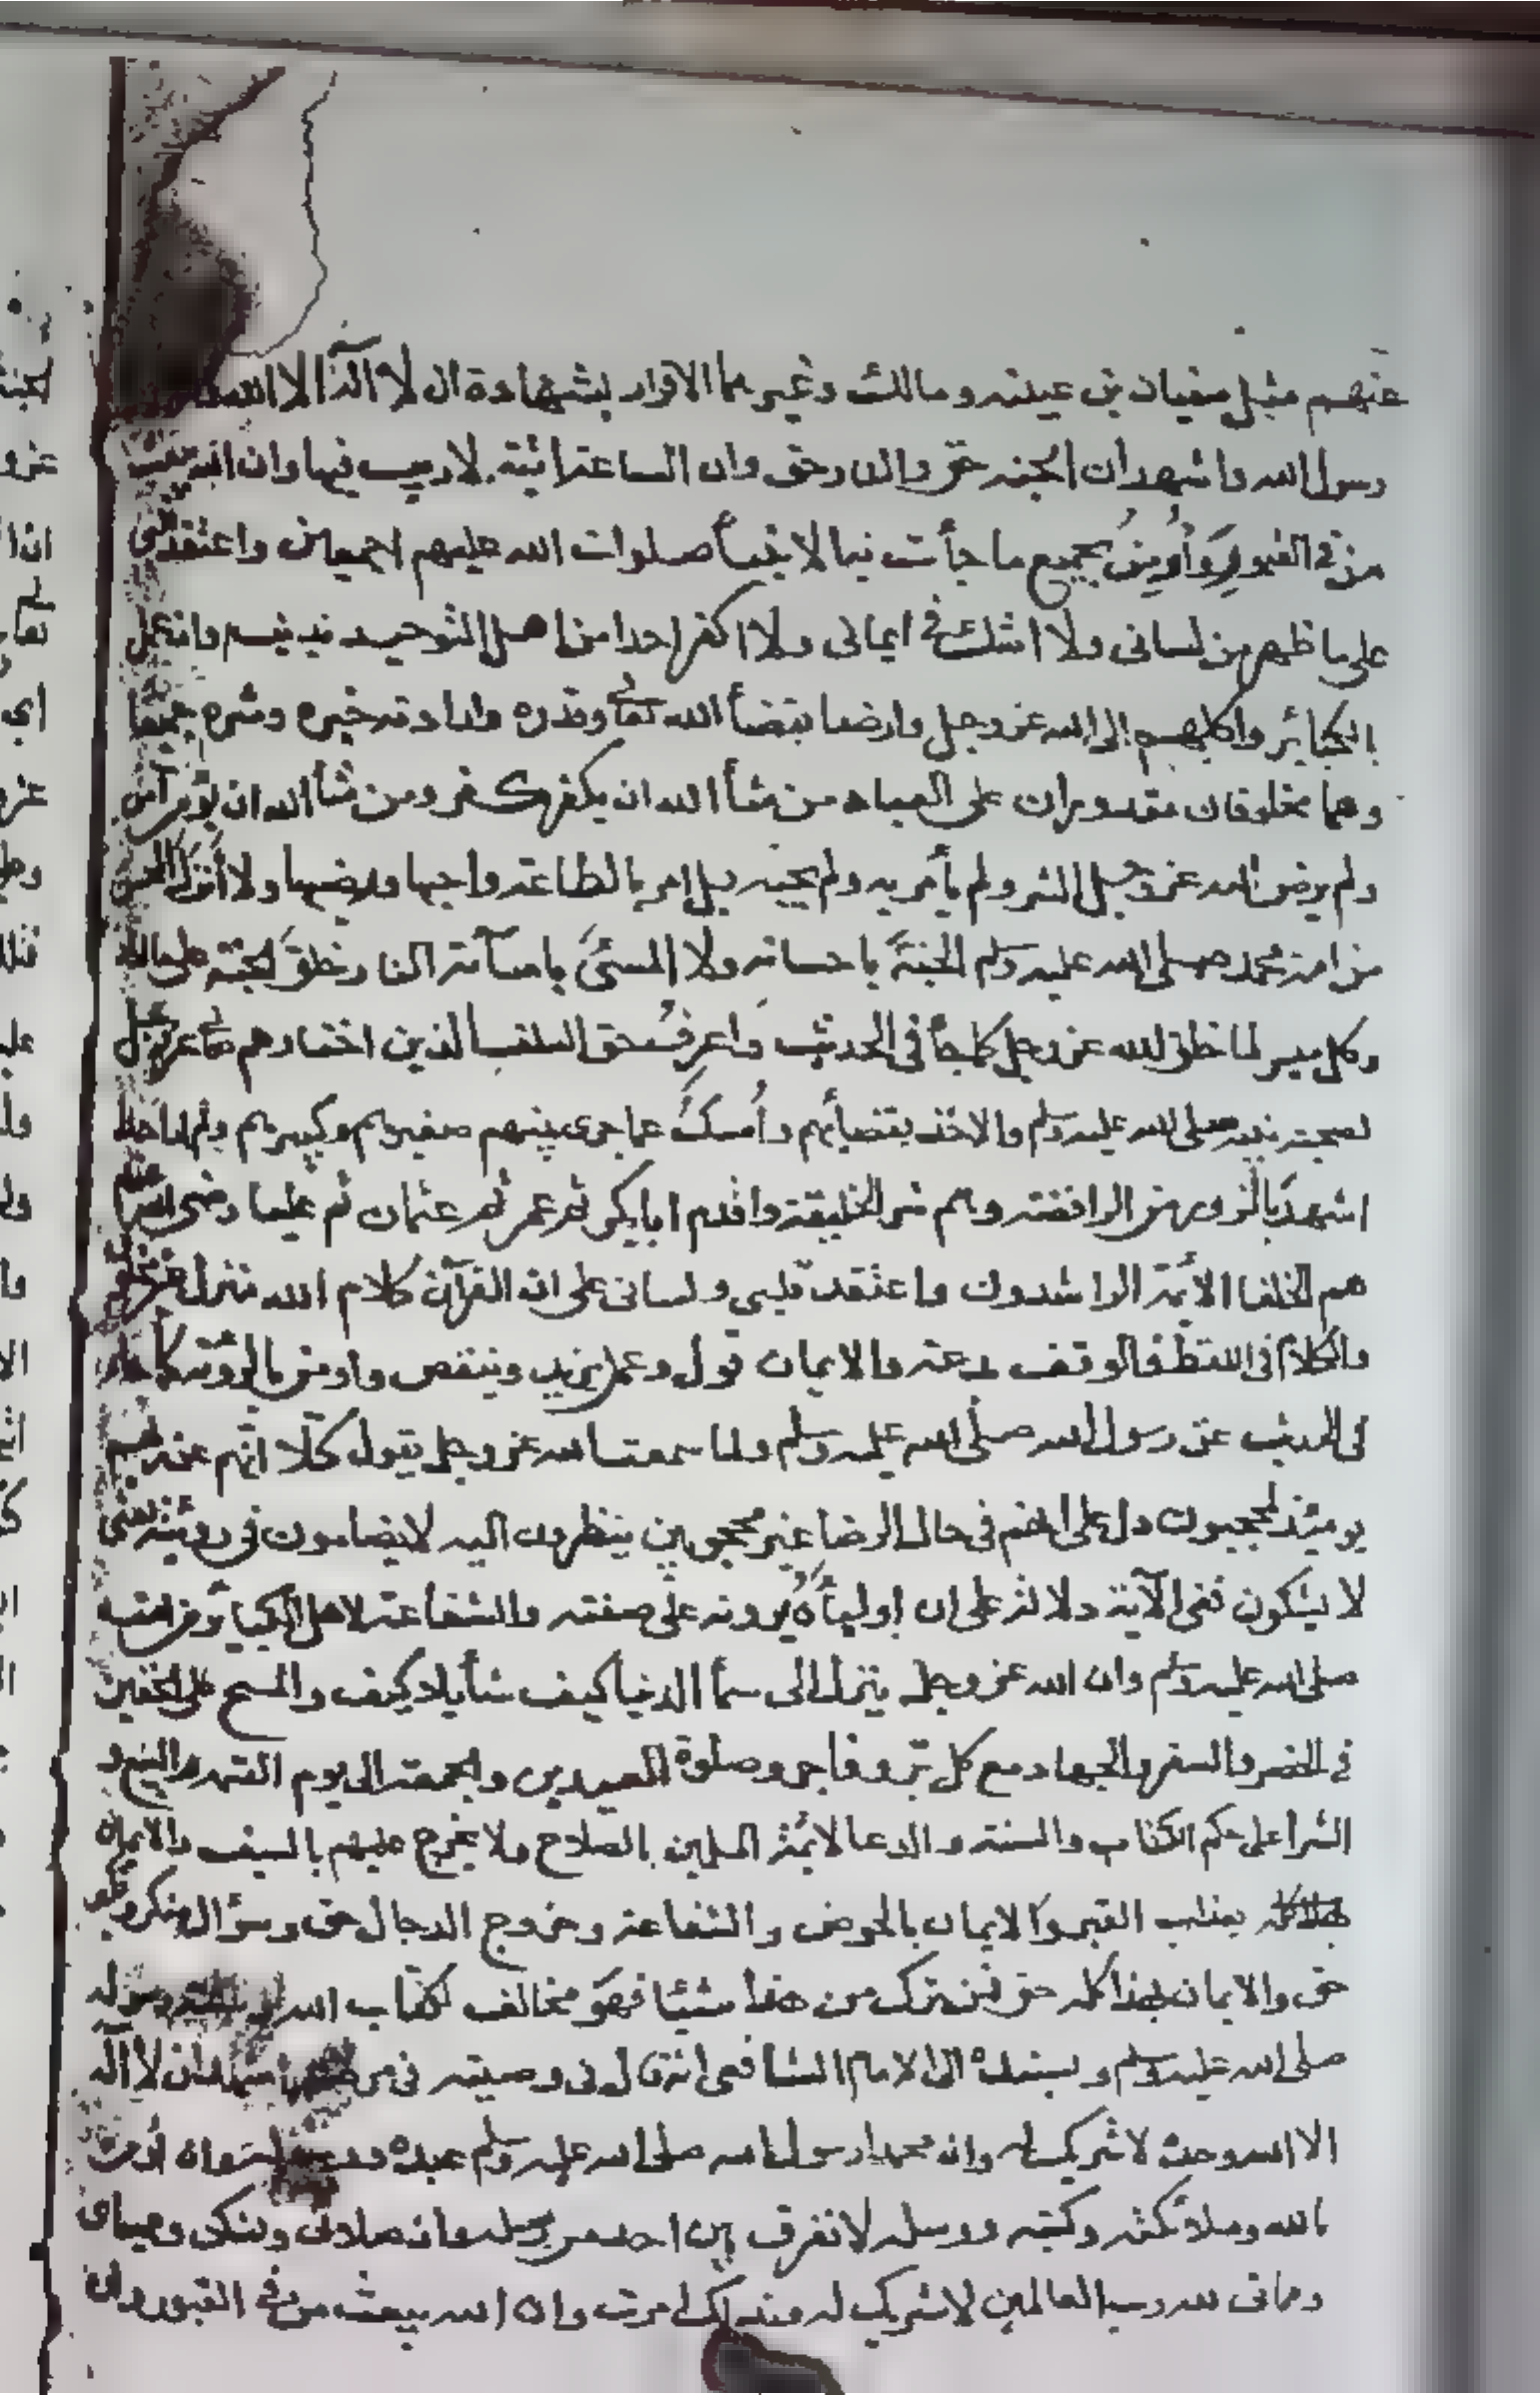 عنهم مثل سفيان بن عيينه ومالك وغيرهما الاقرار بشهادة ان لا اله الا الله
رسول الله واشهد ان الجنه حق والنار حق وان الساعة اتية لا ريب فيها وان الله يبعث
من في القبور وأومن بجميع ما جأت به الانبيأ صلوات الله عليهم اجمعين واعتقد
على ما ظهر من لسانى ولا اشك فى ايمانى ولا اكفر احدا من اهل التوحيد بذنب وان عمل
بالكبائر واكلهم الى الله عز وجل وارضا بقضأ الله تعالى وقدره وارادته خيره وشره جميعا
وهما مخلوقان مقدوران على العباد من شأ الله ان يكفر كفر ومن شأ الله ان يؤمن آمن
ولم يرض الله عز وجل الشر ولم يأمر به ولم يحبه بل امر بالطاعة واحبها ورضيها ولا أنزل المحسن
من امة محمد صلى الله عليه وسلم الجنة باحسانه ولا المسئ باسآته النار خلق الجنة
وكل ميسر لما خلق الله عز وجل كما جأ فى الحديث واعرف حق السلف الذين اختارهم تعالى عز وجل
لصحبة نبيه صلى الله عليه وسلم والاخذ بفضائلهم وأمسك عما جرى بينهم صغيرهم وكبيرهم
اشهد بالزور من الرافضة وهم شر الخليقة واقدم ابابكر ثم عمر ثم عثمان ثم عليا رضى الله عنهم
هم الخلفا الائمة الراشدون واعتقد قلبى ولسانى على ان القرآن كلام الله منزل غير مخلوق
والكلام فى اللفظ والوقف بدعة والايمان قول وعمل يزيد وينقص واومن بالرؤية كما جا
فى الحديث عن رسول الله صلى الله عليه وسلم ولما سمعت الله عز وجل يقول كلّا انهم عن ربهم
يومئذ لمحجوبون دل على انهم فى حال الرضا غير محجوبين ينظرون اليه لا يضامون فى رويته يعنى
لا يشكون ففى الآية دلالة على ان اوليأه يرونه على صفته والشفاعة لاهل الكبائر من امته
صلى الله عليه وسلم وان الله عز وجل ينزل الى سمأ الدنيا كيف شأ بلا كيف والمسح على الخفين
فى الحضر والسفر والجهاد مع كل برّ وفاجر وصلوة العيدين والجمعة الى يوم القيمة والبيع و
الشرا على حكم الكتاب والسنة والدعا لائمة المسلمين بالصلاح ولا يخرج عليهم بالسيف والايمان
بعذاب القبر والايمان بالحوض والشفاعة وخروج الدجال حق وسؤال منكر ونكير
حق والايمان بهذا كله حق فمن ترك من هذا شيئا فهو مخالف لكتاب الله وسنة رسوله
صلى الله عليه وسلم وبسنده الى الامام الشافعى انه قال فى وصيته فى مرضه اشهد ان لا اله
الا الله وحده لا شريك له وان محمدا رسول الله صلى الله عليه وسلم عبده وانه أومن
بالله وملائكته وكتبه ورسله لا نفرق بين احد من رسله وان صلاتى ونسكى ومحياى
ومماتى لله رب العالمين لا شريك له وبذلك امرت وان الله يبعث من فى القبور وان